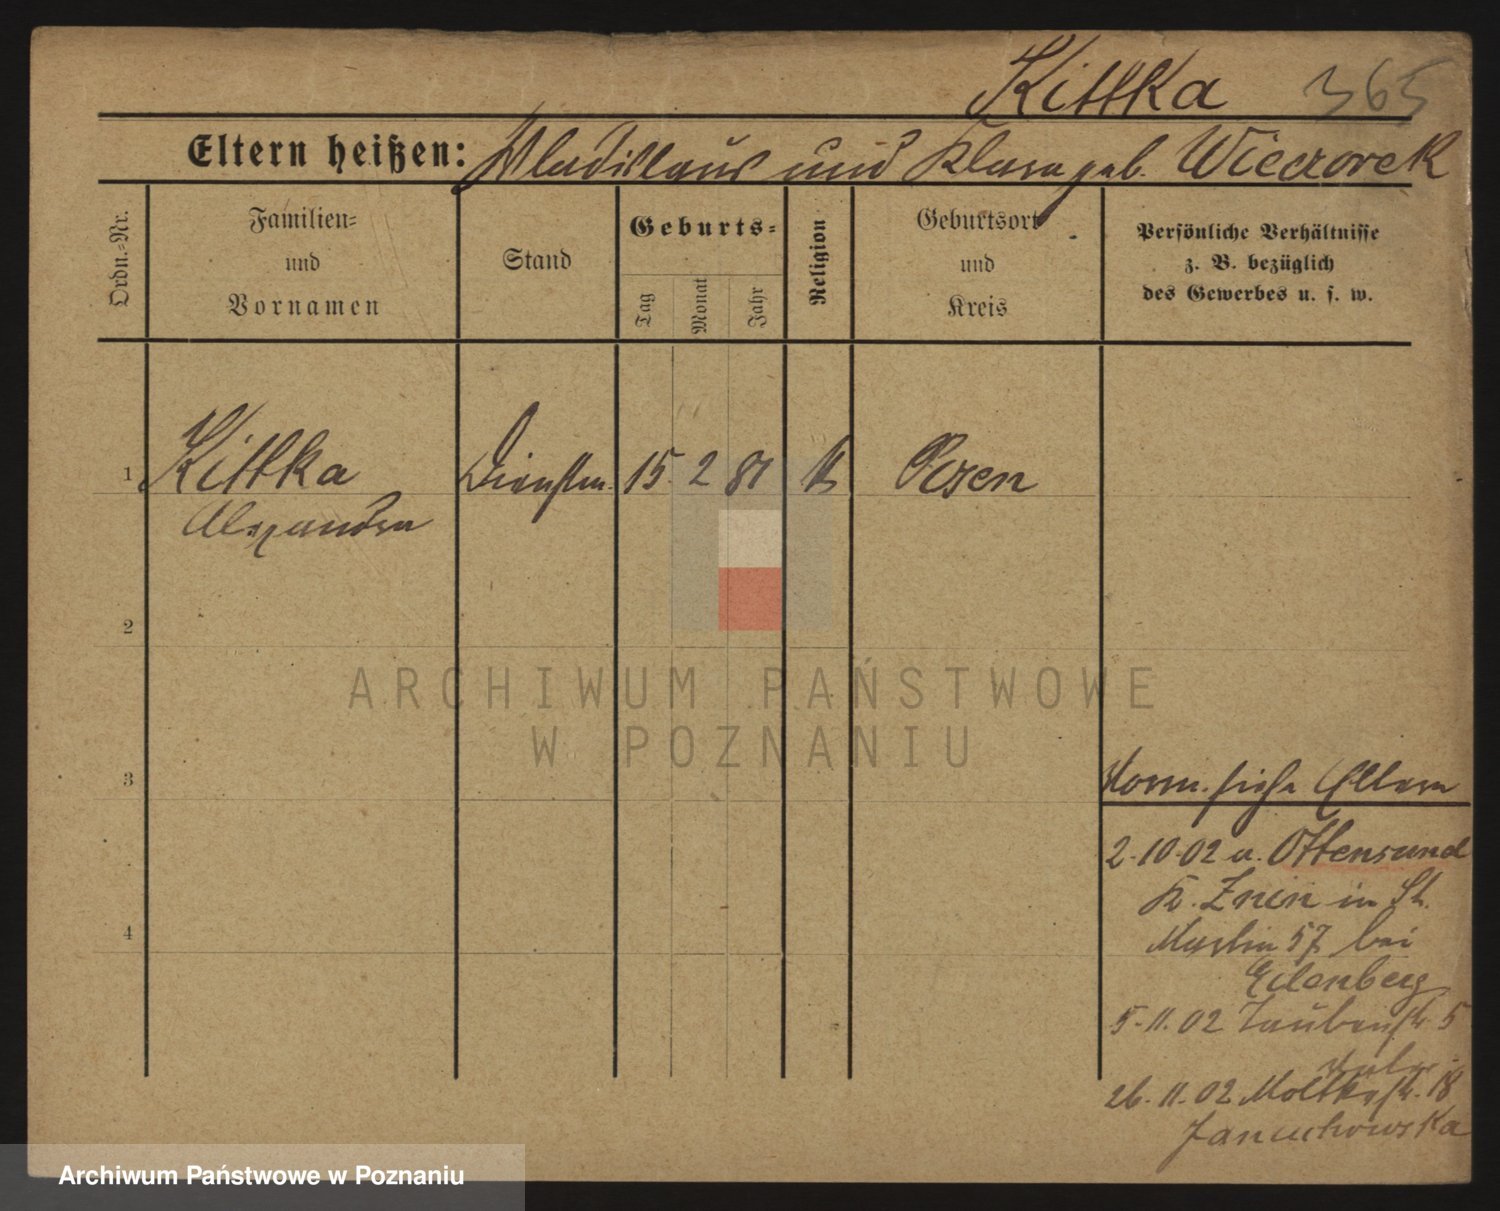 Kittka 365
Eltern heißen: Wladislaus und Klara geb. Wieczorek
Ordn.=Nr.
Familien=
und
Vornamen
Stand
Geburts=
Tag
Monat
Jahr
Religion
Geburtsort
und
Kreis
Persönliche Verhältnisse
z. B. bezüglich
des Gewerbes u. s. w.
1 Kittka Dienstm. 15 2 81 k Posen
Alexandra
2
3
4
Vorm. siehe Eltern
2.10.02 a. Ottensund
K. Znin in St.
Martin 57 bei
Eilenberg
5.11.02 Taubenstr. 5
26.11.02 Moltkestr. 18
ARCHIWUM PAŃSTWOWE
W POZNANIU
Archiwum Państwowe w Poznaniu